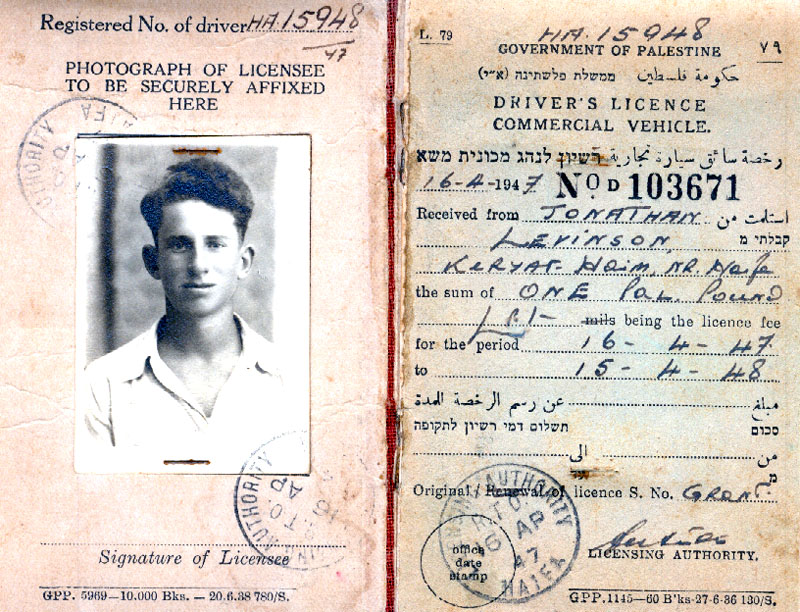 Registered No. of driver HA.15948
47
PHOTOGRAPH OF LICENSEE
TO BE SECURELY AFFIXED
HERE
AUTHORITY
HAIFA
AUTHORITY
16 AP
Signature of Licensee
GPP. 5969—10.000 Bks. — 20.6.38 780/S.
L. 79
HA. 15948
٧٩
GOVERNMENT OF PALESTINE
ממשלת פלשתינה (א״י) حكومة فلسطين
DRIVER'S LICENCE
COMMERCIAL VEHICLE.
רשיון לנהג מכונית משא رخصة سائق سيارة تجارية
16-4-1947 No D 103671
Received from JONATHAN استلمت من
LEVINSON, קבלתי מ
KERYAT-HAIM, NR. HAIFA
the sum of ONE PAL. POUND
LP.1- mills being the licence fee
for the period 16 - 4 - 47
to 15 - 4 - 48
مبلغ عن رسم الرخصة للمدة
סכום תשלום דמי רשיון לתקופה
من الى
מ
Original / Renewal of licence S. No. GRANT.
AUTHORITY
R.T.O.
16 AP
47
HAIFA
office
date
stamp
LICENSING AUTHORITY.
GPP.1145—60 B'ks-27-6-36 130/S.